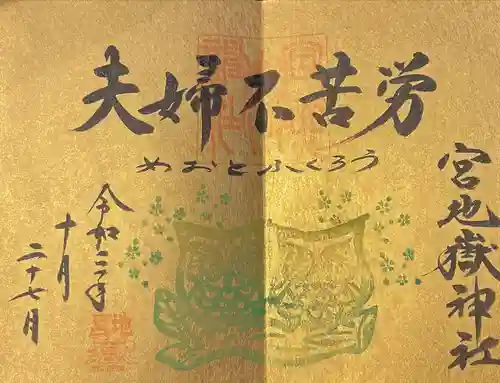 夫婦不苦労
めおとふくろう
宮地嶽神社
令和二年
十月
二十七月